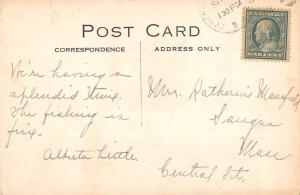 POST CARD
CORRESPONDENCE
ADDRESS ONLY
We're having a
splendid time.
The fishing is
fine.
Alberta Littler
Mrs. Katherine
Saugus
Mass
Central St.
U.S. POSTAGE
ONE CENT